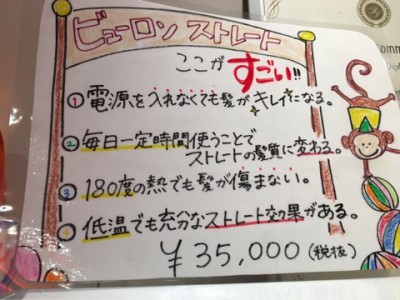 ビューロン ストレート
ここが すごい!!
① 電源を入れなくても髪がキレイになる。
② 毎日一定時間使うことで
ストレートの髪質に変わる。
③ 180度の熱でも髪が傷まない。
④ 低温でも充分なストレート効果がある。
¥35,000(税抜)